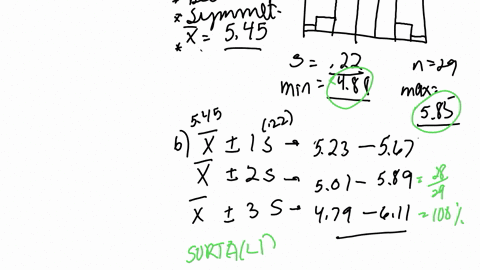 * Symmet.
* x̄ = 5.45
*
s = .22 n=29
min = 4.88 max=
5.85
5.45 (.22)
b) x̄ ± 1s → 5.23 – 5.67
x̄ ± 2s → 5.01 – 5.89 = 28/29
x̄ ± 3s → 4.79 – 6.11 = 100%
SORTA(L1)